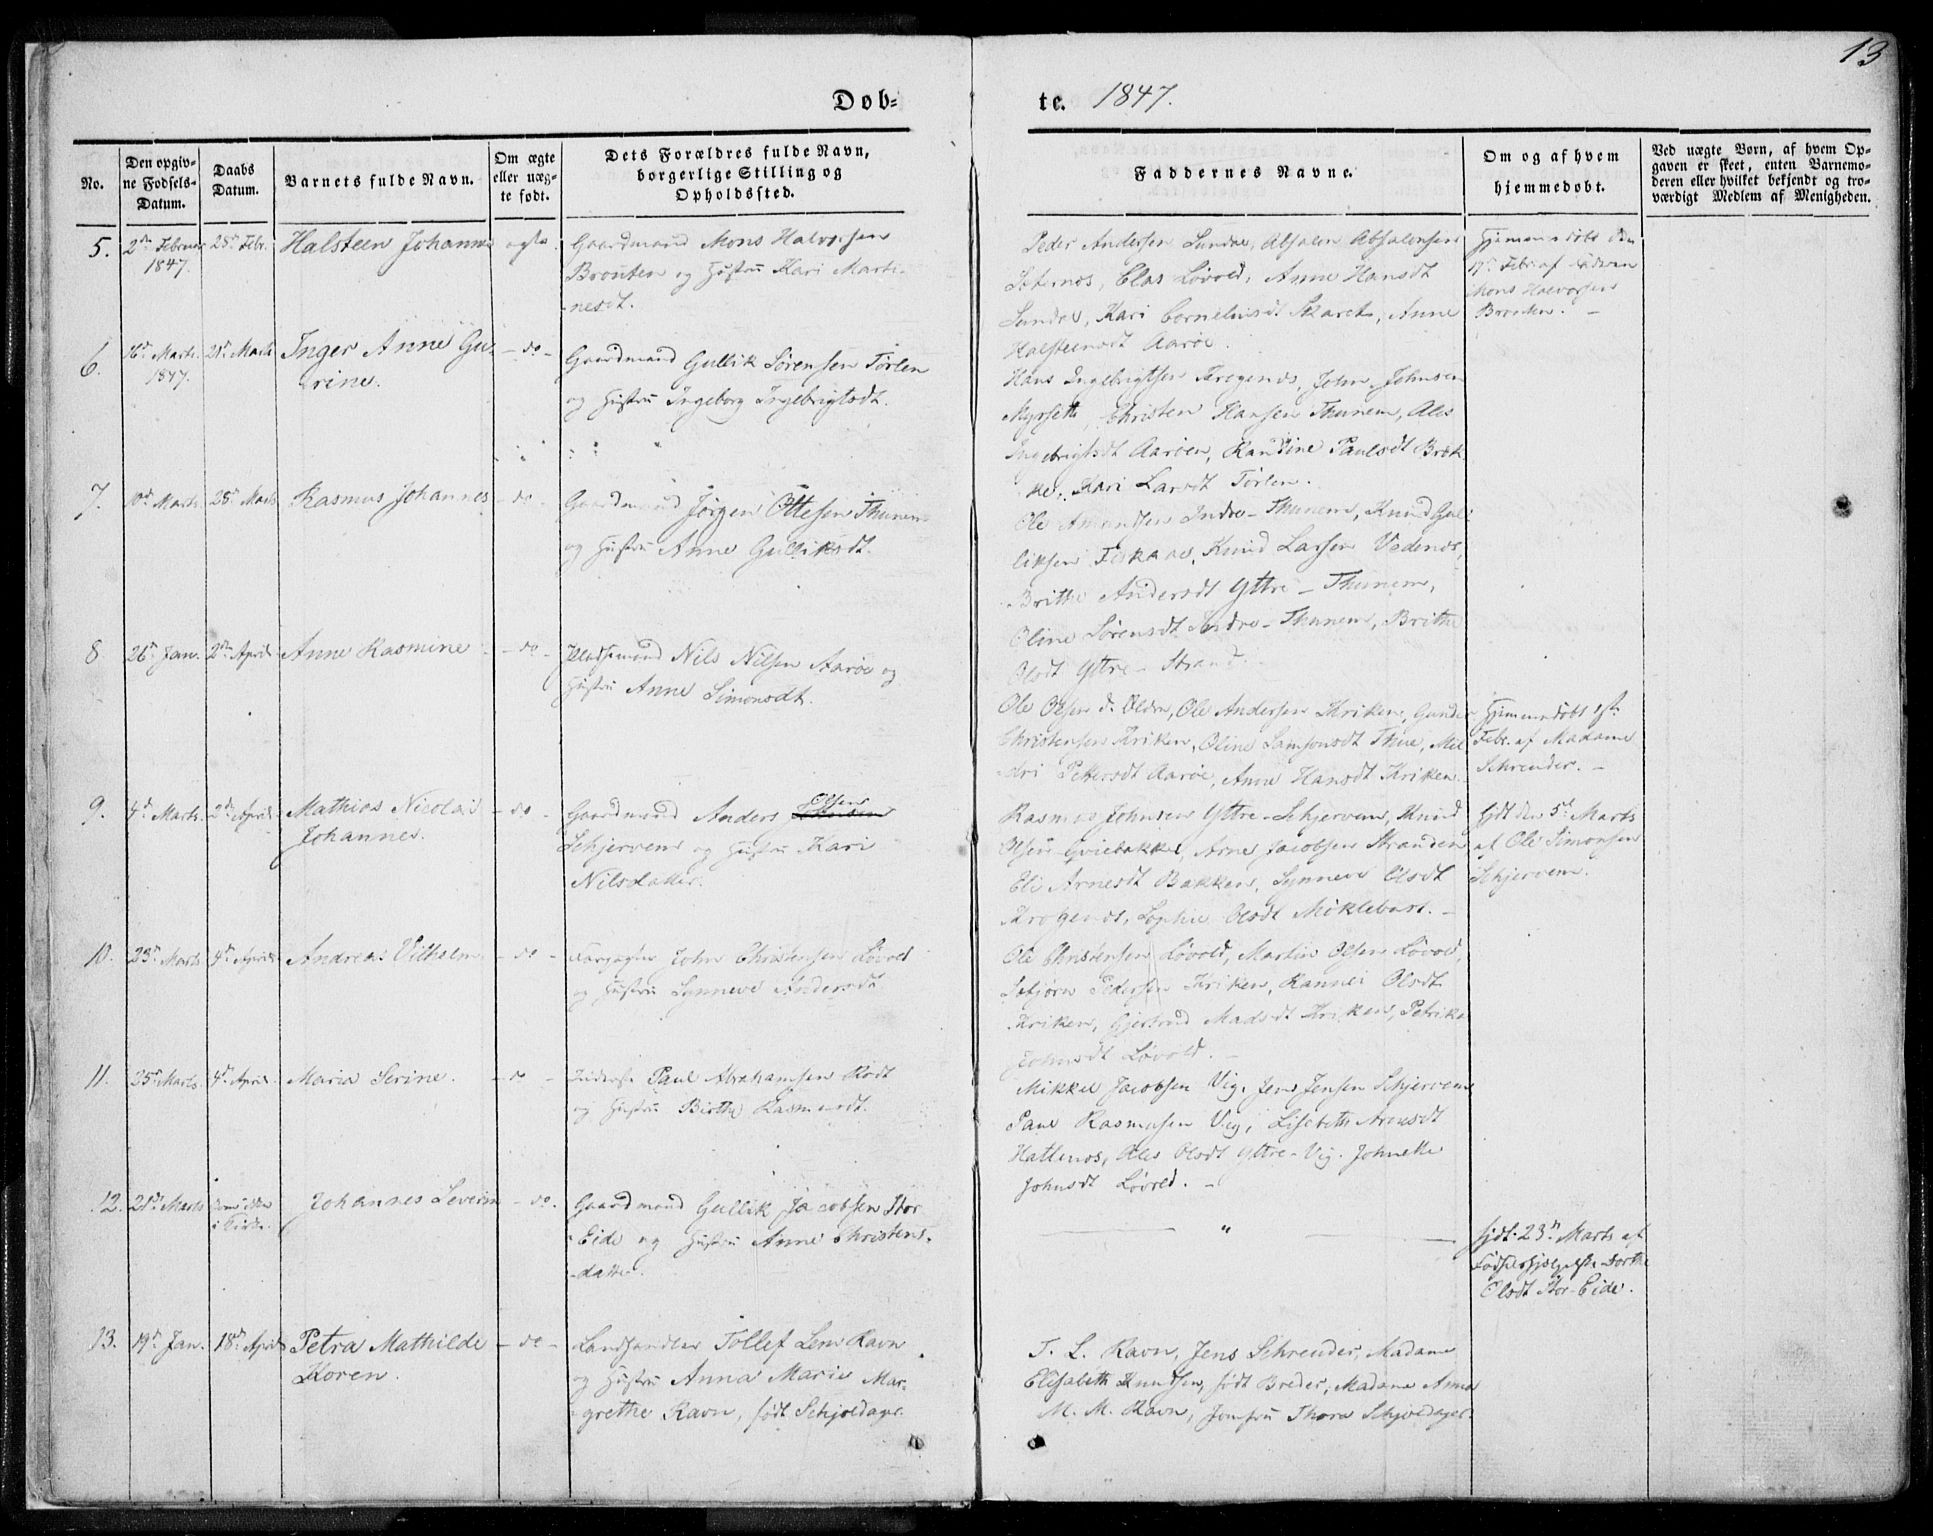 13
Døb- te. 1847.
No.
Den opgiv-
ne Fødsels-
Datum.
Daabs
Datum.
Barnets fulde Navn.
Om ægte
eller uæg-
te født.
Dets Forældres fulde Navn,
borgerlige Stilling og
Opholdssted.
Faddernes Navne.
Om og af hvem
hjemmedøbt.
Ved uægte Børn, af hvem Op-
gaven er skeet, enten Barnemo-
deren eller hvilket bekjendt og tro-
værdigt Medlem af Menigheden.
5.
2den Februar
1847.
28de Febr.
Halsteen Johannes
ægte
Gaardmand Mons Halvorsen
Brouten og Hustru Kari Marti-
nesdt.
Peder Andersen Sundre, Absalon Absalonsen
Clas Løvold, Anne Hansdt
Kari Cornelius dt Skaret, Anne
Halsteensdt Aarøe.
Hjemmedøbt den
17de Febr. af Faderen
Mons Halvorsen
Brouten. -
6.
16de Marts
1847.
21de Marts
Inger Anne Gu-
rine.
- do -
Gaardmand Gullik Sørensen Tørlen
og Hustru Ingeborg Ingebrigtsdt.
Hans Ingebrigtsen Krogenæs, John Johnsen
Myrseth, Christen Hansen Thunem, Ales
Ingebrigtsdt Aarøen, Randine Paulsdt Bræk-
ke, Kari Larsdt Tørlen.
7.
10de Marts
28de Marts
Rasmus Johannes
- do -
Gaardmand Jørgen Ottesen Thunem
og Hustru Anne Gulliksdt.
Ole Amundsen Indre-Thunem, Knud Gul-
liksen Knud Larsen
Brithe Andersdt Yttre-Thunem,
Oline Sørensdt Indre-Thunem, Brithe
Olsdt Yttre-Strand.
8
26de Jan.
2den April
Anne Rasmine
- do -
Pladsmand Nils Nilsen Aarøe og
Hustru Anne Simonsdt.
Ole Olsen Ole Andersen Kriken, Gunder
Christensen Kriken, Oline Samsonsdt
Pettersdt Aarøe, Anne Hansdt Kriken.
Hjemmedøbt 1ste
Febr. af Madame
Schreuder. -
9.
4de Marts
2den April
Mathias Nicolai
Johannes.
- do -
Gaardmand Anders Olsen
Schjervem og Hustru Kari
Nilsdatter.
Rasmus Johnsen Yttre-Schjervem, Knud
Olsen Arne Jacobsen Stranden
Eli Arnesdt Bakken, Synneve Olsdt
Krogenæs, Sophie Olsdt Møklebust. -
Hjdt den 5te Marts
af Ole Simonsen
Schjervem.
10.
23de Marts
4de April
Andreas Vilhelm
- do -
John Christensen Løvold
og Hustru Synneve Andersdt
Ole Christensen Løvold, Martin Olsen Løvold,
Pedersen Kriken, Rannei Olsdt
Kriken, Gjertrud Madsdt Kriken, Petrike
Johnsdt Løvold. -
11.
25de Marts
4de April
Maria Serine.
- do -
Inderst Paul Abrahamsen Rødt
og Hustru Birthe Rasmusdt.
Mikkel Jacobsen Vig, Jens Jensen Schjervem
Paul Rasmusen Vig, Lisebeth Arnesdt
Hatlenæs, Ales Olsdt Yttre-Vig. Johneke
Johnsdt Løvold. -
12.
21de Marts
i Kirke.
Johannes Severin
- do -
Gaardmand Gullik Jacobsen Stor
Eide og Hustru Anne Christens-
datter.
"
Hjdt. 23de Marts af
Dorthe
Olsdt Stor-Eide.
13.
19de Jan.
18de April
Petra Mathilde
Koren.
- do -
Landhandler Tollef Lem Ravn
og Hustru Anna Marie Mar-
grethe Ravn, født Schjoldager.
T. L. Ravn, Jens Schreuder, Madame
Elisabeth Knudsen, født Breder, Madame Anna
M. M. Ravn, Jomfru Thora Schjoldager.